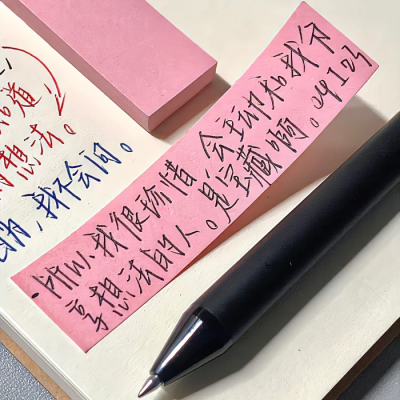 知道
的想法。
的，我不会问。
所以，我很珍惜 会主动和我分
享想法的人。是宝藏啊。